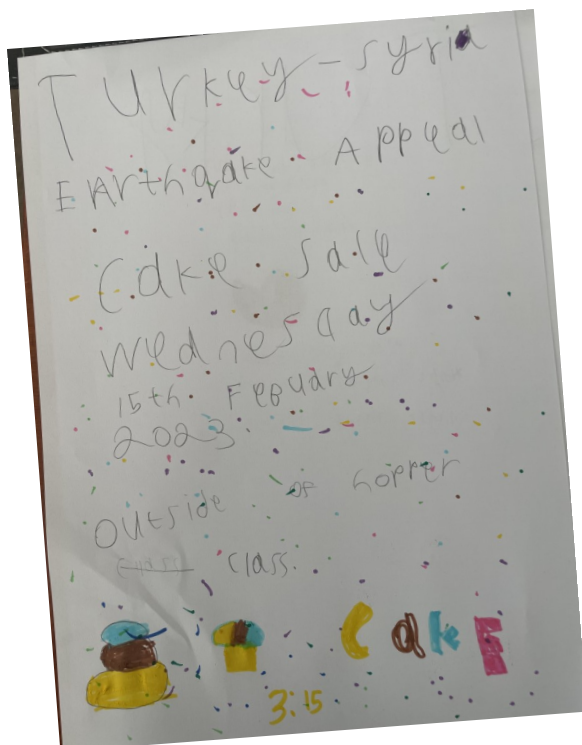 Turkey-Syria
EArthqake Appeal
Cake sale
Wednesday
15th Febuary
2023
outside of hopper
class.
CakE
3:15